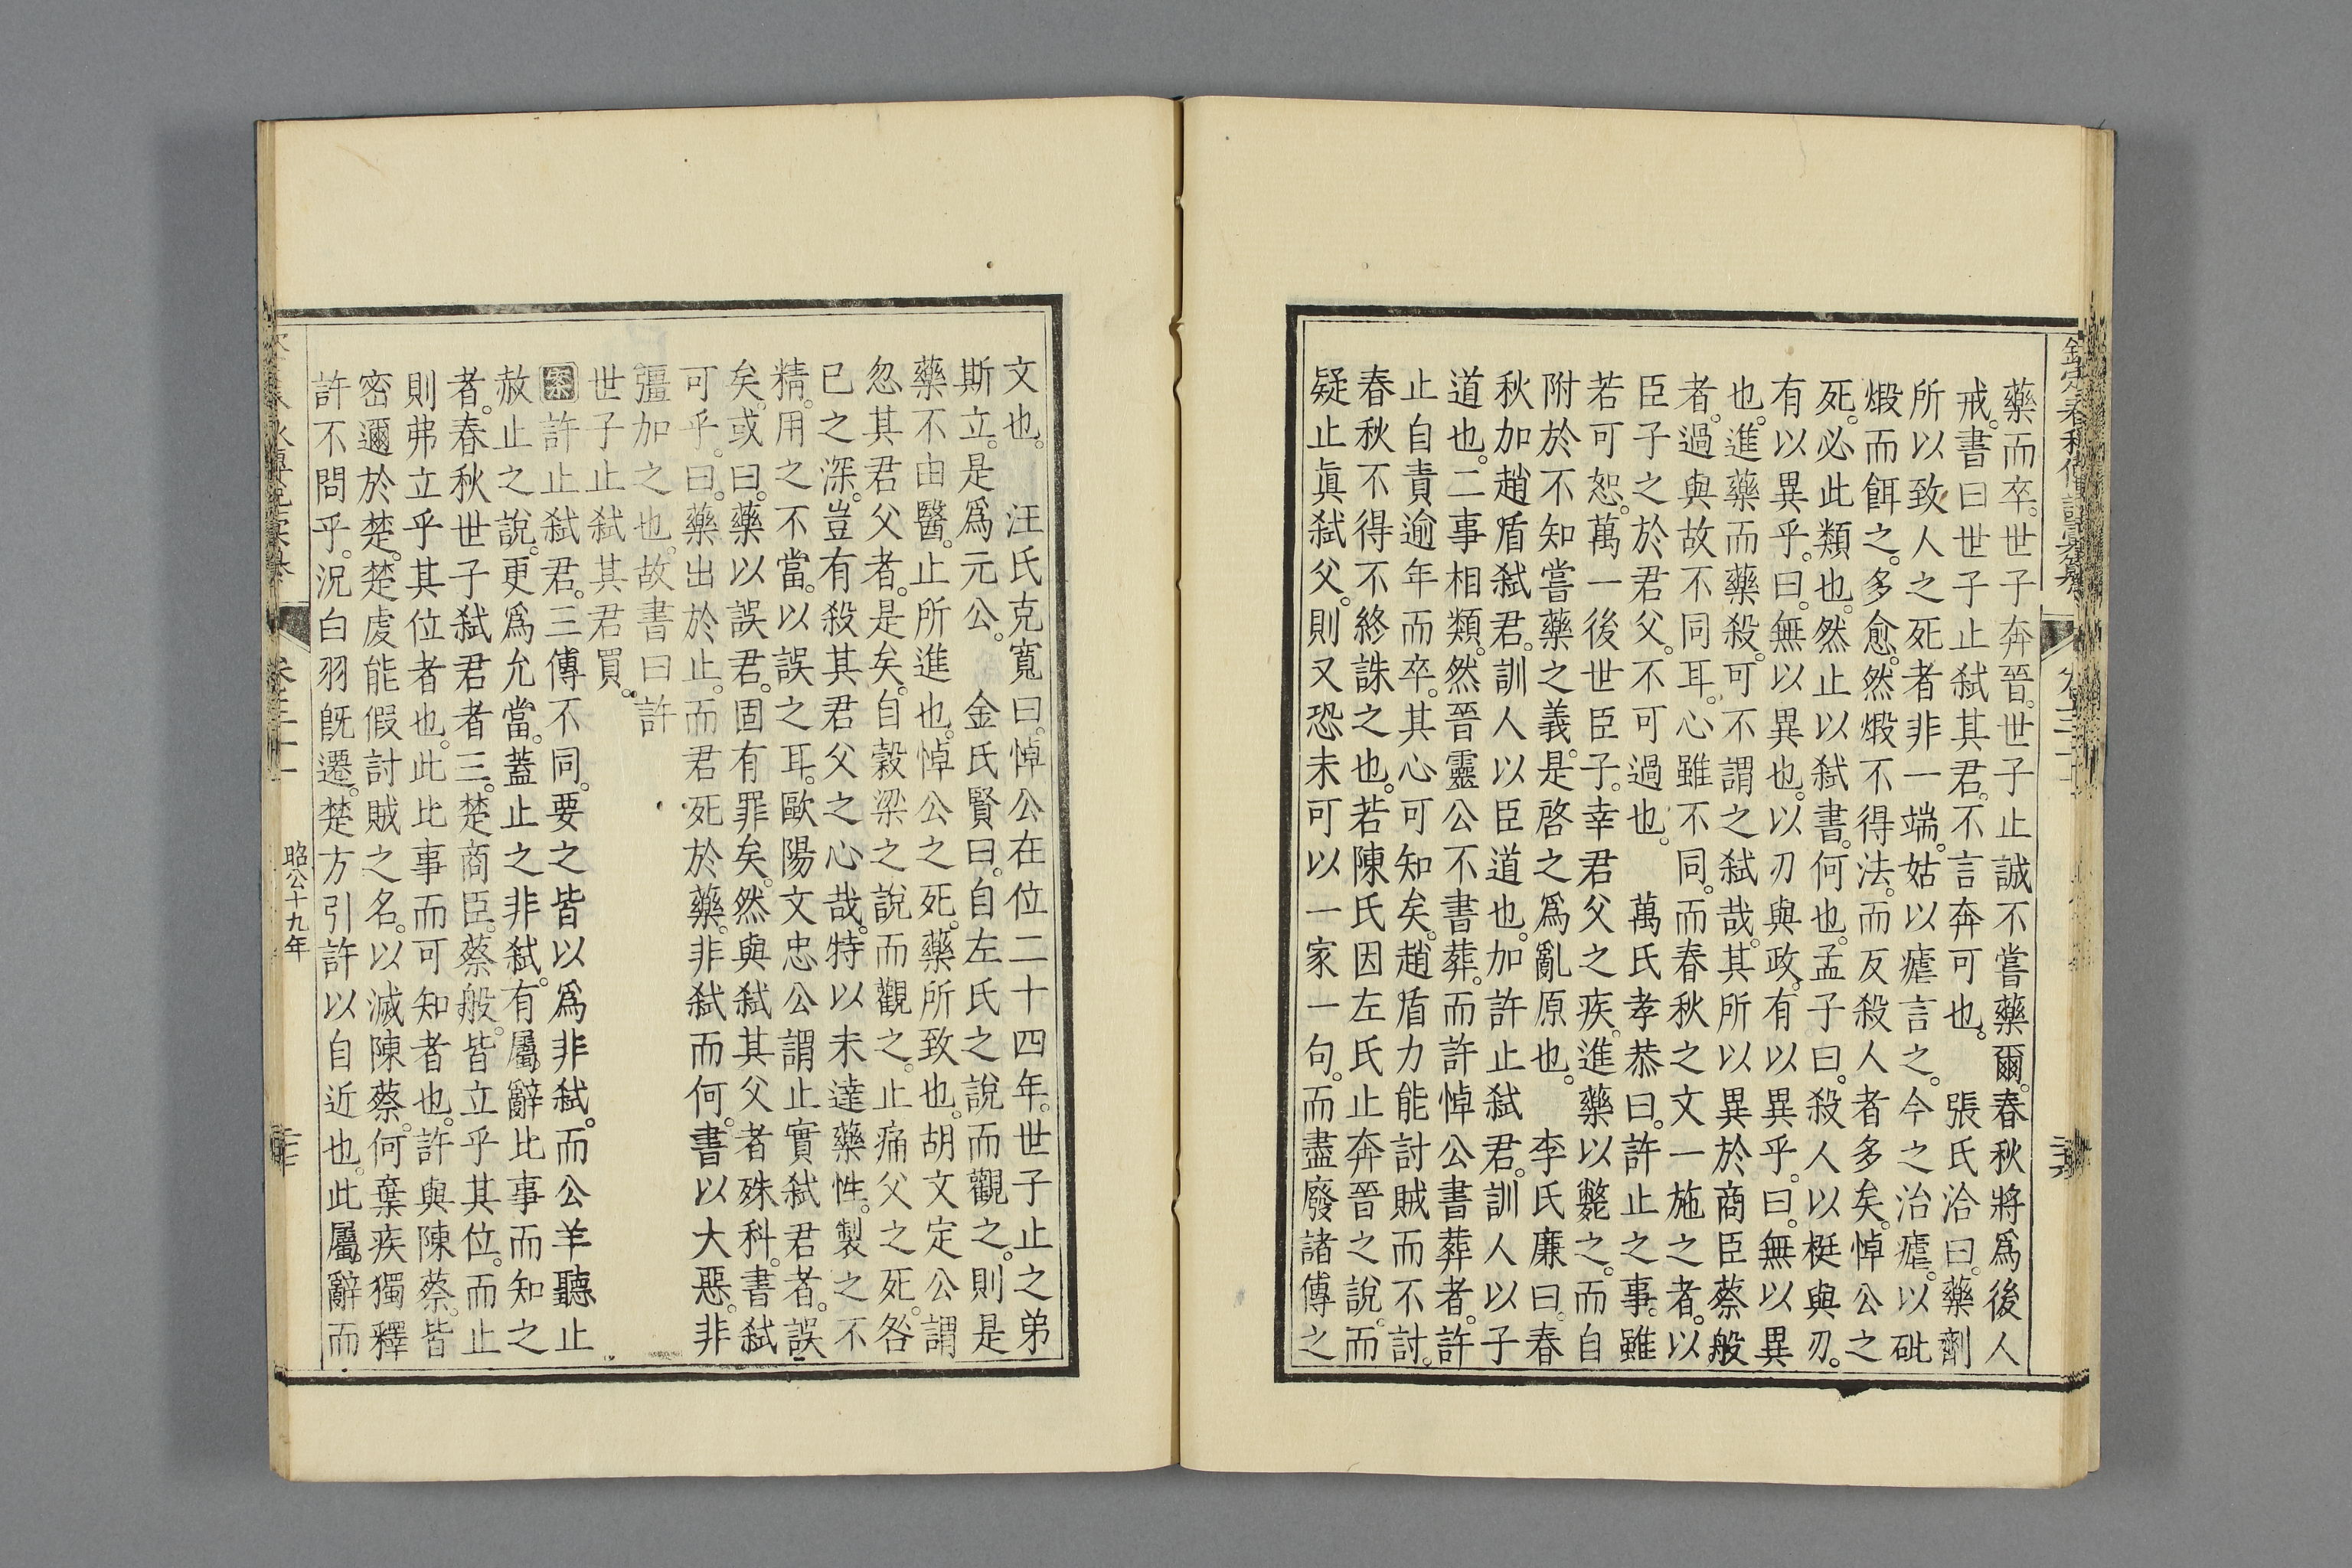 藥而卒。世子奔晉。世子止誠不嘗藥爾。春秋將爲後人
戒。書曰世子止弒其君。不言奔可也。　張氏洽曰。藥劑
所以致人之死者非一端。姑以瘧言之。今之治瘧。以砒
煅而餌之。多愈。然煅不得法。而反殺人者多矣。悼公之
死。必此類也。然止以弒書。何也。孟子曰。殺人以梃與刃。
有以異乎。曰。無以異也。以刃與政。有以異乎。曰。無以異
也。進藥而藥殺。可不謂之弒哉。其所以異於商臣蔡般
者。過與故不同耳。心雖不同。而春秋之文一施之者。以
臣子之於君父。不可過也。　萬氏孝恭曰。許止之事。雖
若可恕。萬一後世臣子。幸君父之疾。進藥以斃之。而自
附於不知嘗藥之義。是啓之爲亂原也。　李氏廉曰。春
秋加趙盾弒君。訓人以臣道也。加許止弒君。訓人以子
道也。二事相類。然晉靈公不書葬。而許悼公書葬者。許
止自責逾年而卒。其心可知矣。趙盾力能討賊而不討。
春秋不得不終誅之也。若陳氏因左氏止奔晉之說。而
疑止眞弒父。則又恐未可以一家一句。而盡廢諸傳之
文也。　汪氏克寬曰。悼公在位二十四年。世子止之弟
斯立。是爲元公。　金氏賢曰。自左氏之說而觀之。則是
藥不由醫。止所進也。悼公之死。藥所致也。胡文定公謂
忽其君父者。是矣。自穀梁之說而觀之。止痛父之死。咎
已之深。豈有殺其君父之心哉。特以未達藥性。製之不
精。用之不當。以誤之耳。歐陽文忠公謂止實弒君者。誤
矣。或曰。藥以誤君。固有罪矣。然與弒其父者殊科。書弒
可乎。曰。藥出於止。而君死於藥。非弒而何。書以大惡。非
彊加之也。故書曰許
世子止弒其君買。
案許止弒君。三傳不同。要之皆以爲非弒。而公羊聽止
赦止之說。更爲允當。蓋止之非弒。有屬辭比事而知之
者。春秋世子弒君者三。楚商臣。蔡般。皆立乎其位。而止
則弗立乎其位者也。此比事而可知者也。許與陳蔡。皆
密邇於楚。楚虔能假討賊之名。以滅陳蔡。何棄疾獨釋
許不問乎。況白羽旣遷。楚方引許以自近也。此屬辭而
昭公十九年